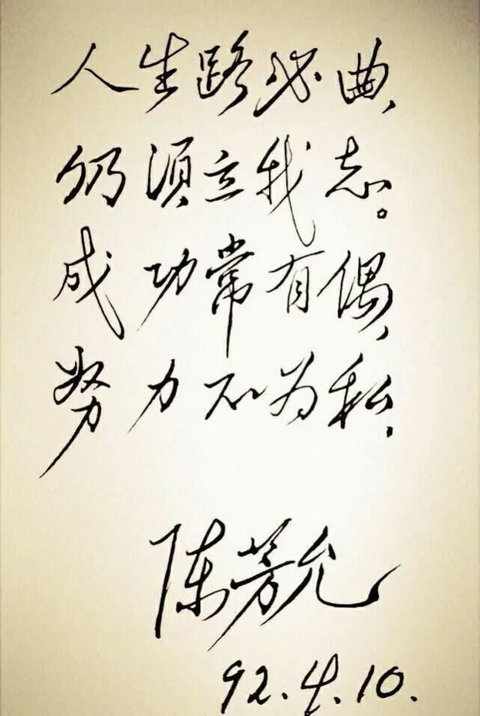 人生路必曲,
仍须立我志。
成功常有偶,
努力不为私.
陈芳允
92.4.10.